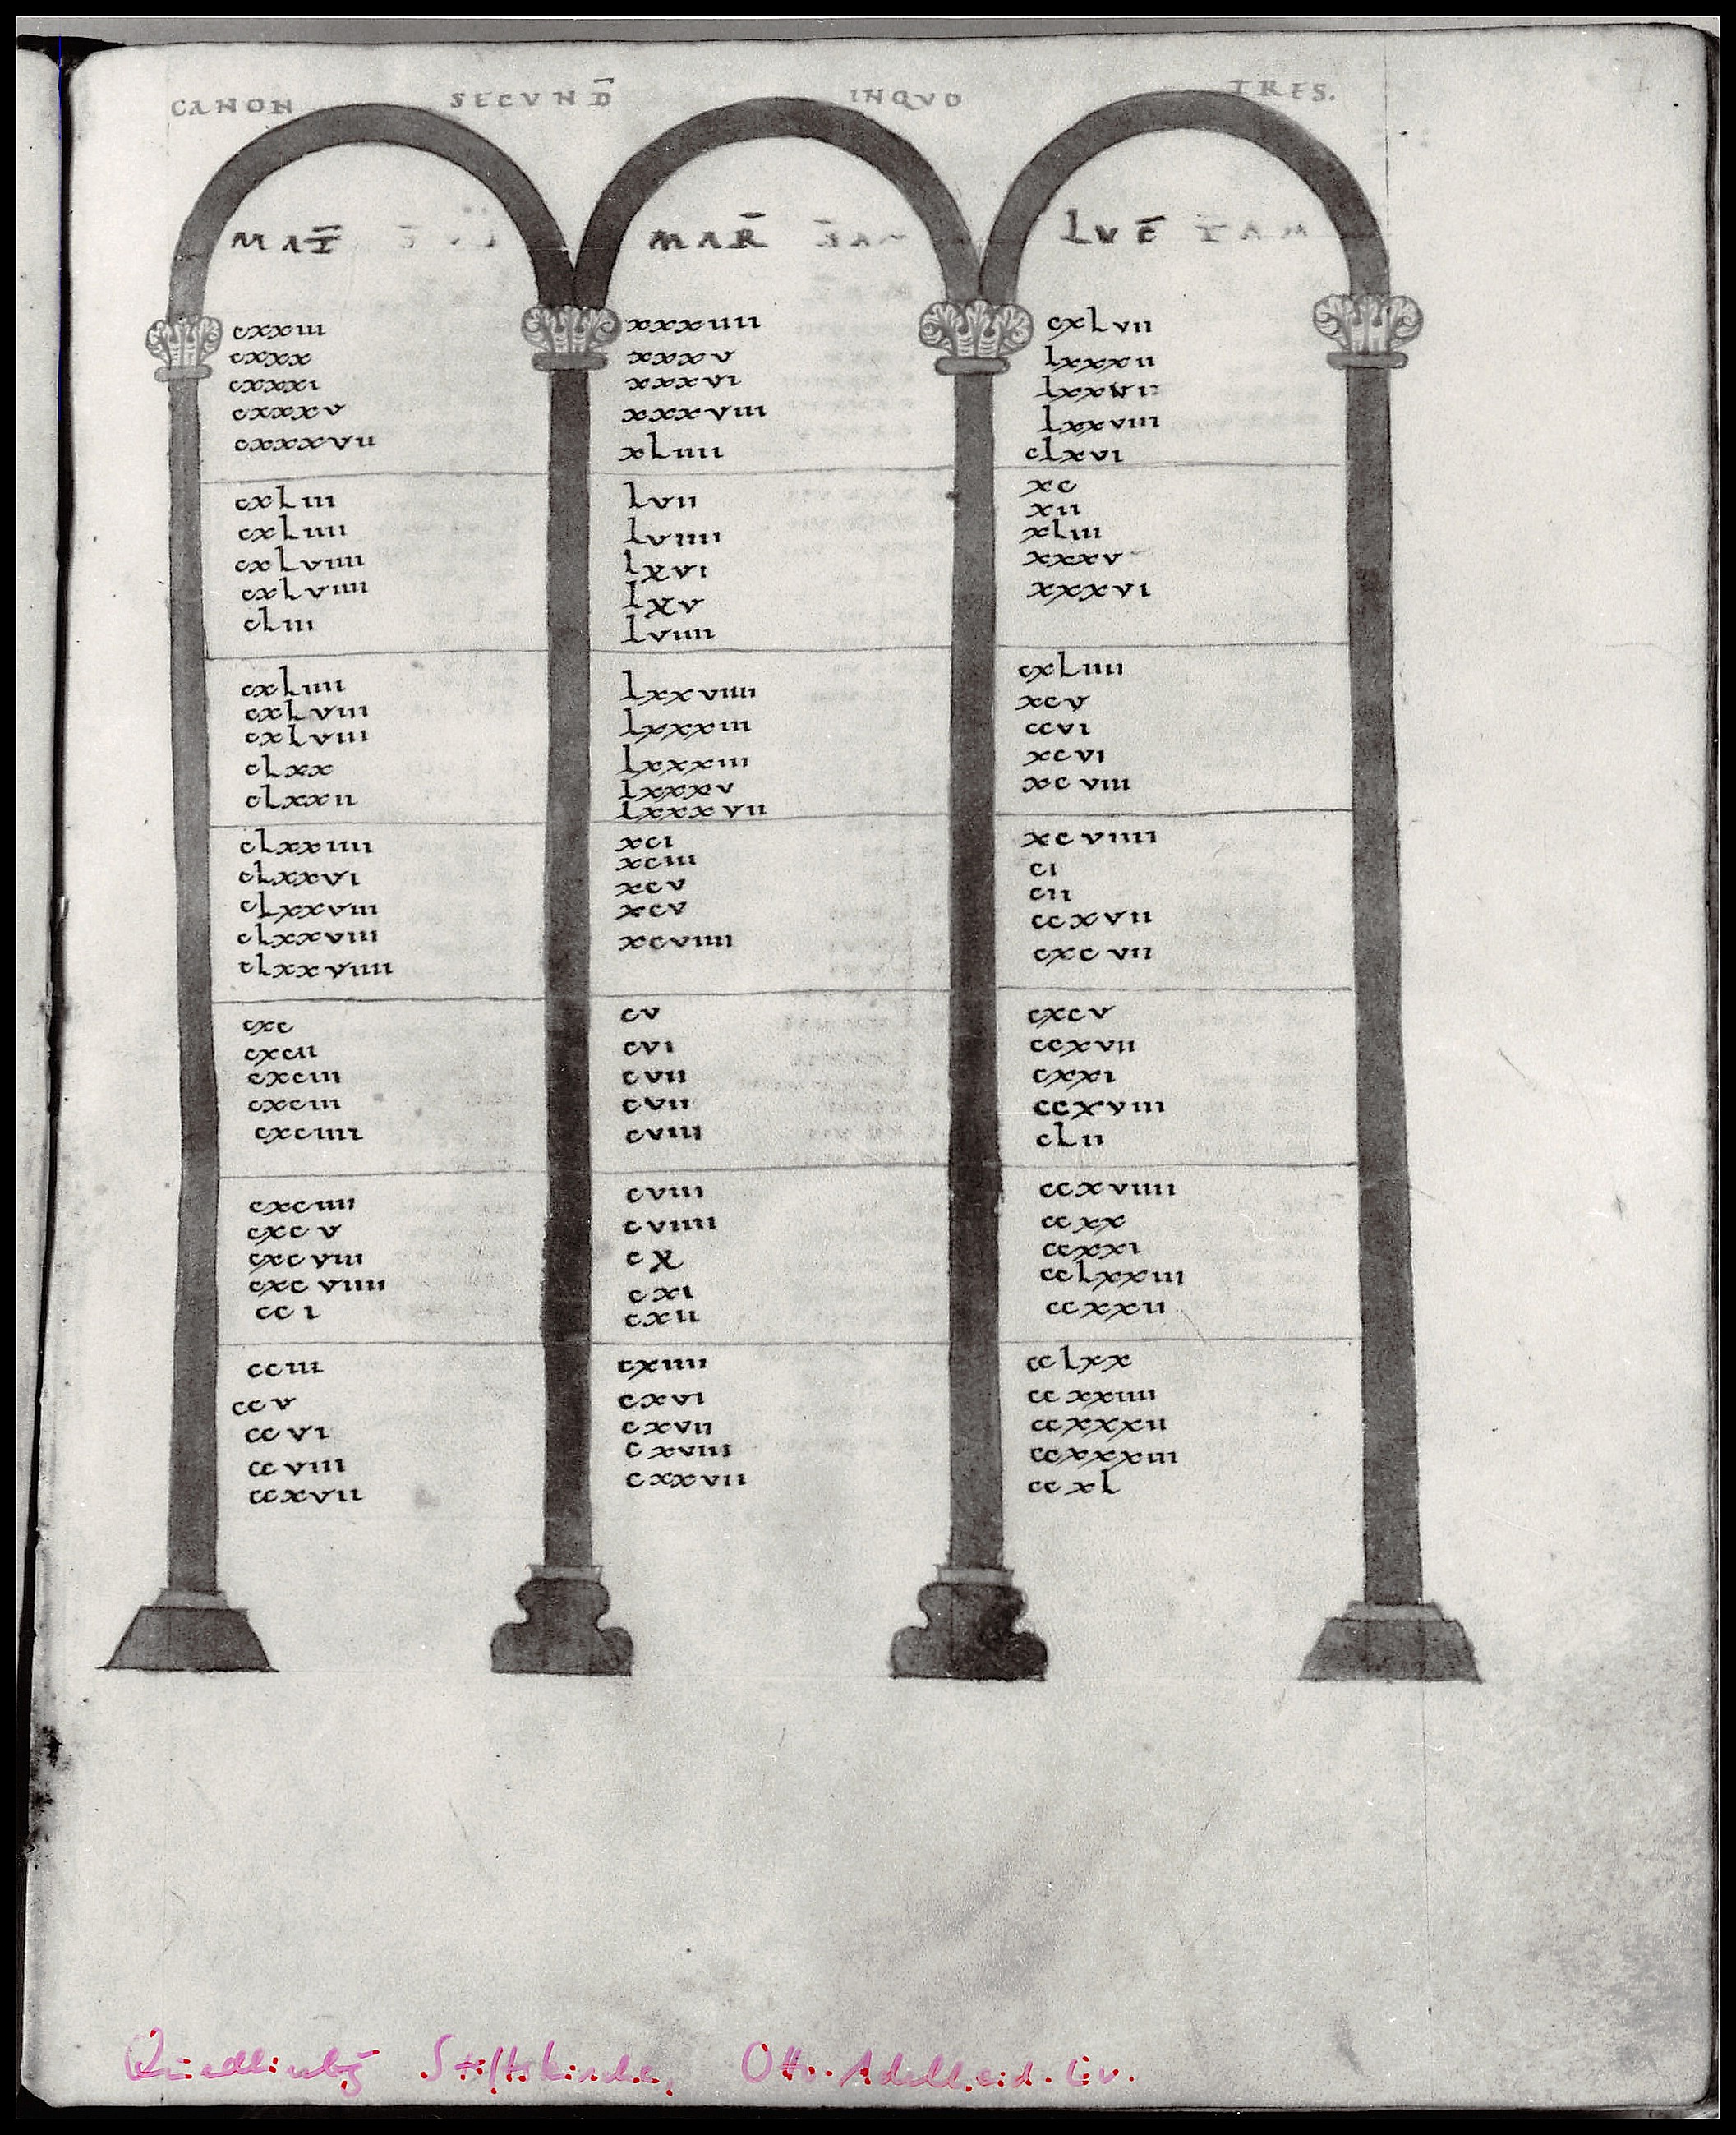 CANON SECVND̄ INQVO TRES.
MAT̄ MAR̄ LVC̄ TAM
cxxiii xxxiiii cxlvii
cxxx xxxv lxxxii
cxxxi xxxvi
cxxxv xxxviii lxxviii
cxxxvii xliiii clxvi
cxliii lvii xc
cxliiii lviiii xii
cxlviiii lxvi xliii
cxlviiii lxv xxxv
cliii lviiii xxxvi
cxliiii lxxviiii cxliiii
cxlviii lxxxiii xcv
cxlviii lxxxiii ccvi
clxx lxxxv xcvi
clxxii lxxxvii xcviii
clxxiiii xci xcviiii
clxxvi xciii ci
clxxviii xcv cii
clxxviii xcv ccxvii
clxxviiii xcviiii cxcvii
cxc cv cxcv
cxcii cvi ccxvii
cxciii cvii cxxi
cxciii cvii ccxviii
cxciiii cviii clii
cxciiii cviii ccxviiii
cxcv cviiii ccxx
cxcviii cx ccxxi
cxcviiii cxi cclxxiii
cci cxii ccxxii
cciii cxiiii cclxx
ccv cxvi ccxxiiii
ccvi cxvii ccxxxii
ccviii cxviii ccxxxiii
ccxvii cxxvii ccxl
Quedlinbg Stiftskirche, Otto-Adelheid-Ev.